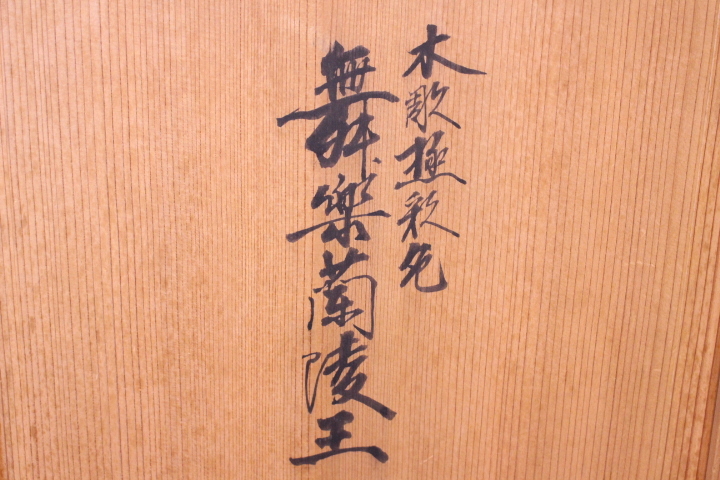 木彫極彩色
舞樂蘭陵王